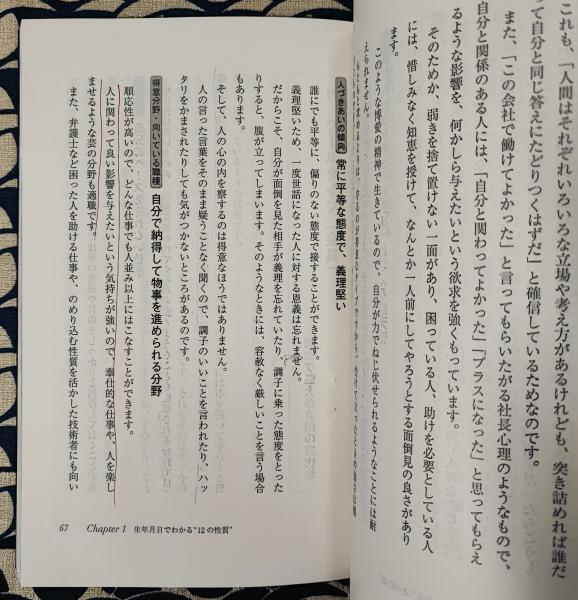 これも、「人間はそれぞれいろいろな立場や考え方があるけれども、突き詰めれば誰だ
って自分と同じ答えにたどりつくはずだ」と確信しているためなのです。
また、「この会社で働けてよかった」と言ってもらいたがる社長心理のようなもので、
自分と関係のある人には、「自分と関わってよかった」「プラスになった」と思ってもらえ
るような影響を、何かしら与えたいという欲求を強くもっています。
そのためか、弱きを捨て置けない一面があり、困っている人、助けを必要としている人
には、惜しみなく知恵を授けて、なんとか一人前にしてやろうとする面倒見の良さがあり
ます。
このような博愛の精神で生きているので、自分が力でねじ伏せられるようなことには耐
えられません。
人づきあいの傾向 常に平等な態度で、義理堅い
誰にでも平等に、偏りのない態度で接することができます。
義理堅いため、一度世話になった人に対する恩義は忘れません。
だからこそ、自分が面倒を見た相手が義理を忘れていたり、調子に乗った態度をとった
りすると、腹が立ってしまいます。そのようなときには、容赦なく厳しいことを言う場合
もあります。
そして、人の心の内を察するのは得意なほうではありません。
人の言った言葉をそのまま疑うことなく聞くので、調子のいいことを言われたり、ハッ
タリをかまされたりしても気がつかないところがあるのです。
得意分野・向いている職種 自分で納得して物事を進められる分野
順応性が高いので、どんな仕事でも人並み以上にはこなすことができます。
人に関わって良い影響を与えたいという気持ちが強いので、奉仕的な仕事や、人を楽し
ませるような芸の分野も適職です。
また、弁護士など困った人を助ける仕事や、のめり込む性質を活かした技術者にも向い
67 Chapter 1 生年月日でわかる"12の性質"